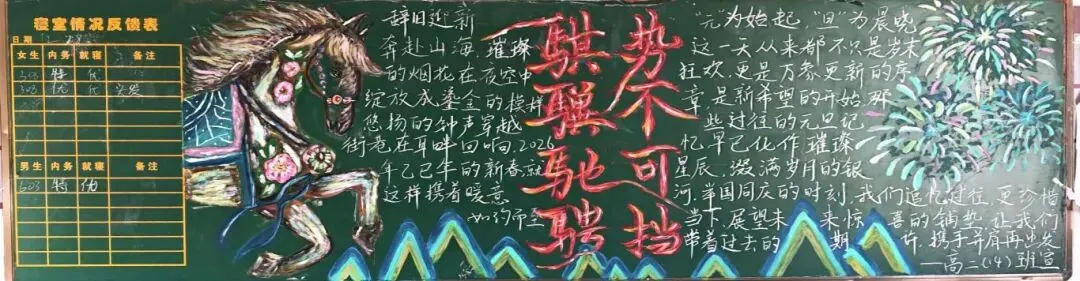 寝室情况反馈表
日期
女生 内务 就寝 备注
男生 内务 就寝 备注
603 特 优
辞旧迎新
奔赴山海,璀璨
的烟花在夜空中
绽放成鎏金的模样
悠扬的钟声穿越
街巷,在耳畔回响,2026
年乙巳年的新春,就
这样携着暖意
如约而至
骐骥驰骋
势不可挡
“元”为始起,“旦”为晨晓
这一天从来都不只是岁末
狂欢,更是万象更新的序
章,是新希望的开始,那
些过往的元旦记
忆早已化作璀璨
星辰,缀满岁月的银
河,举国同庆的时刻,我们追忆过往,更珍惜
当下,展望未来惊喜的铺垫,让我们
带着过去的期许,携手并肩再出发
—高二(14)班宣